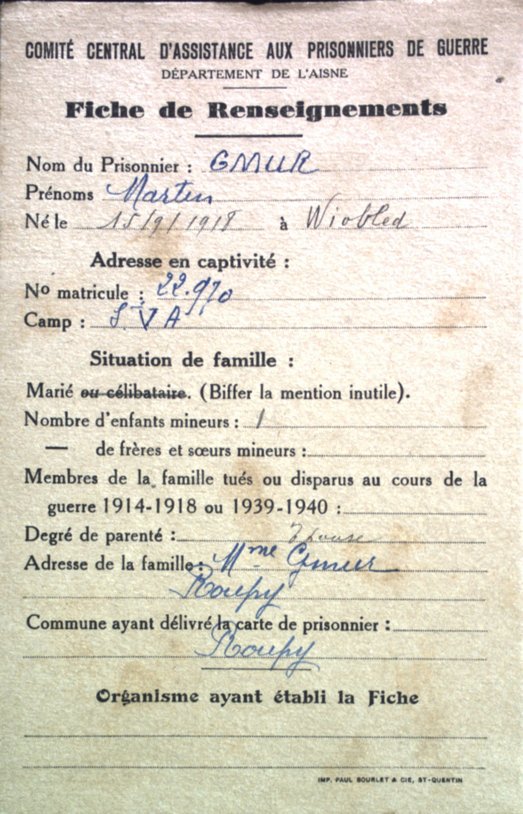 COMITÉ CENTRAL D'ASSISTANCE AUX PRISONNIERS DE GUERRE
DÉPARTEMENT DE L'AISNE
Fiche de Renseignements
Nom du Prisonnier : GMUR
Prénoms Martin
Né le 15/9/1918 à Wiobled
Adresse en captivité :
No matricule : 22.970
Camp : S V A
Situation de famille :
Marié ou célibataire. (Biffer la mention inutile).
Nombre d'enfants mineurs : 1
— de frères et sœurs mineurs :
Membres de la famille tués ou disparus au cours de la
guerre 1914-1918 ou 1939-1940 :
Degré de parenté : Épouse
Adresse de la famille : Mme Gmur
Roupy
Commune ayant délivré la carte de prisonnier :
Roupy
Organisme ayant établi la Fiche
IMP. PAUL BOURLET & CIE, ST-QUENTIN